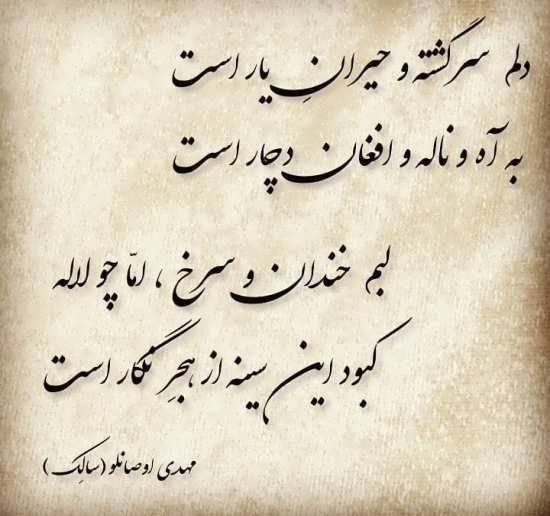 دلم سرگشته و حیرانِ یار است
به آه و ناله و افغان دچار است
لبم خندان و سرخ ، امّا چو لاله
کبود این سینه از هجرِ نگار است
مهدی اوصانلو (سالِک)